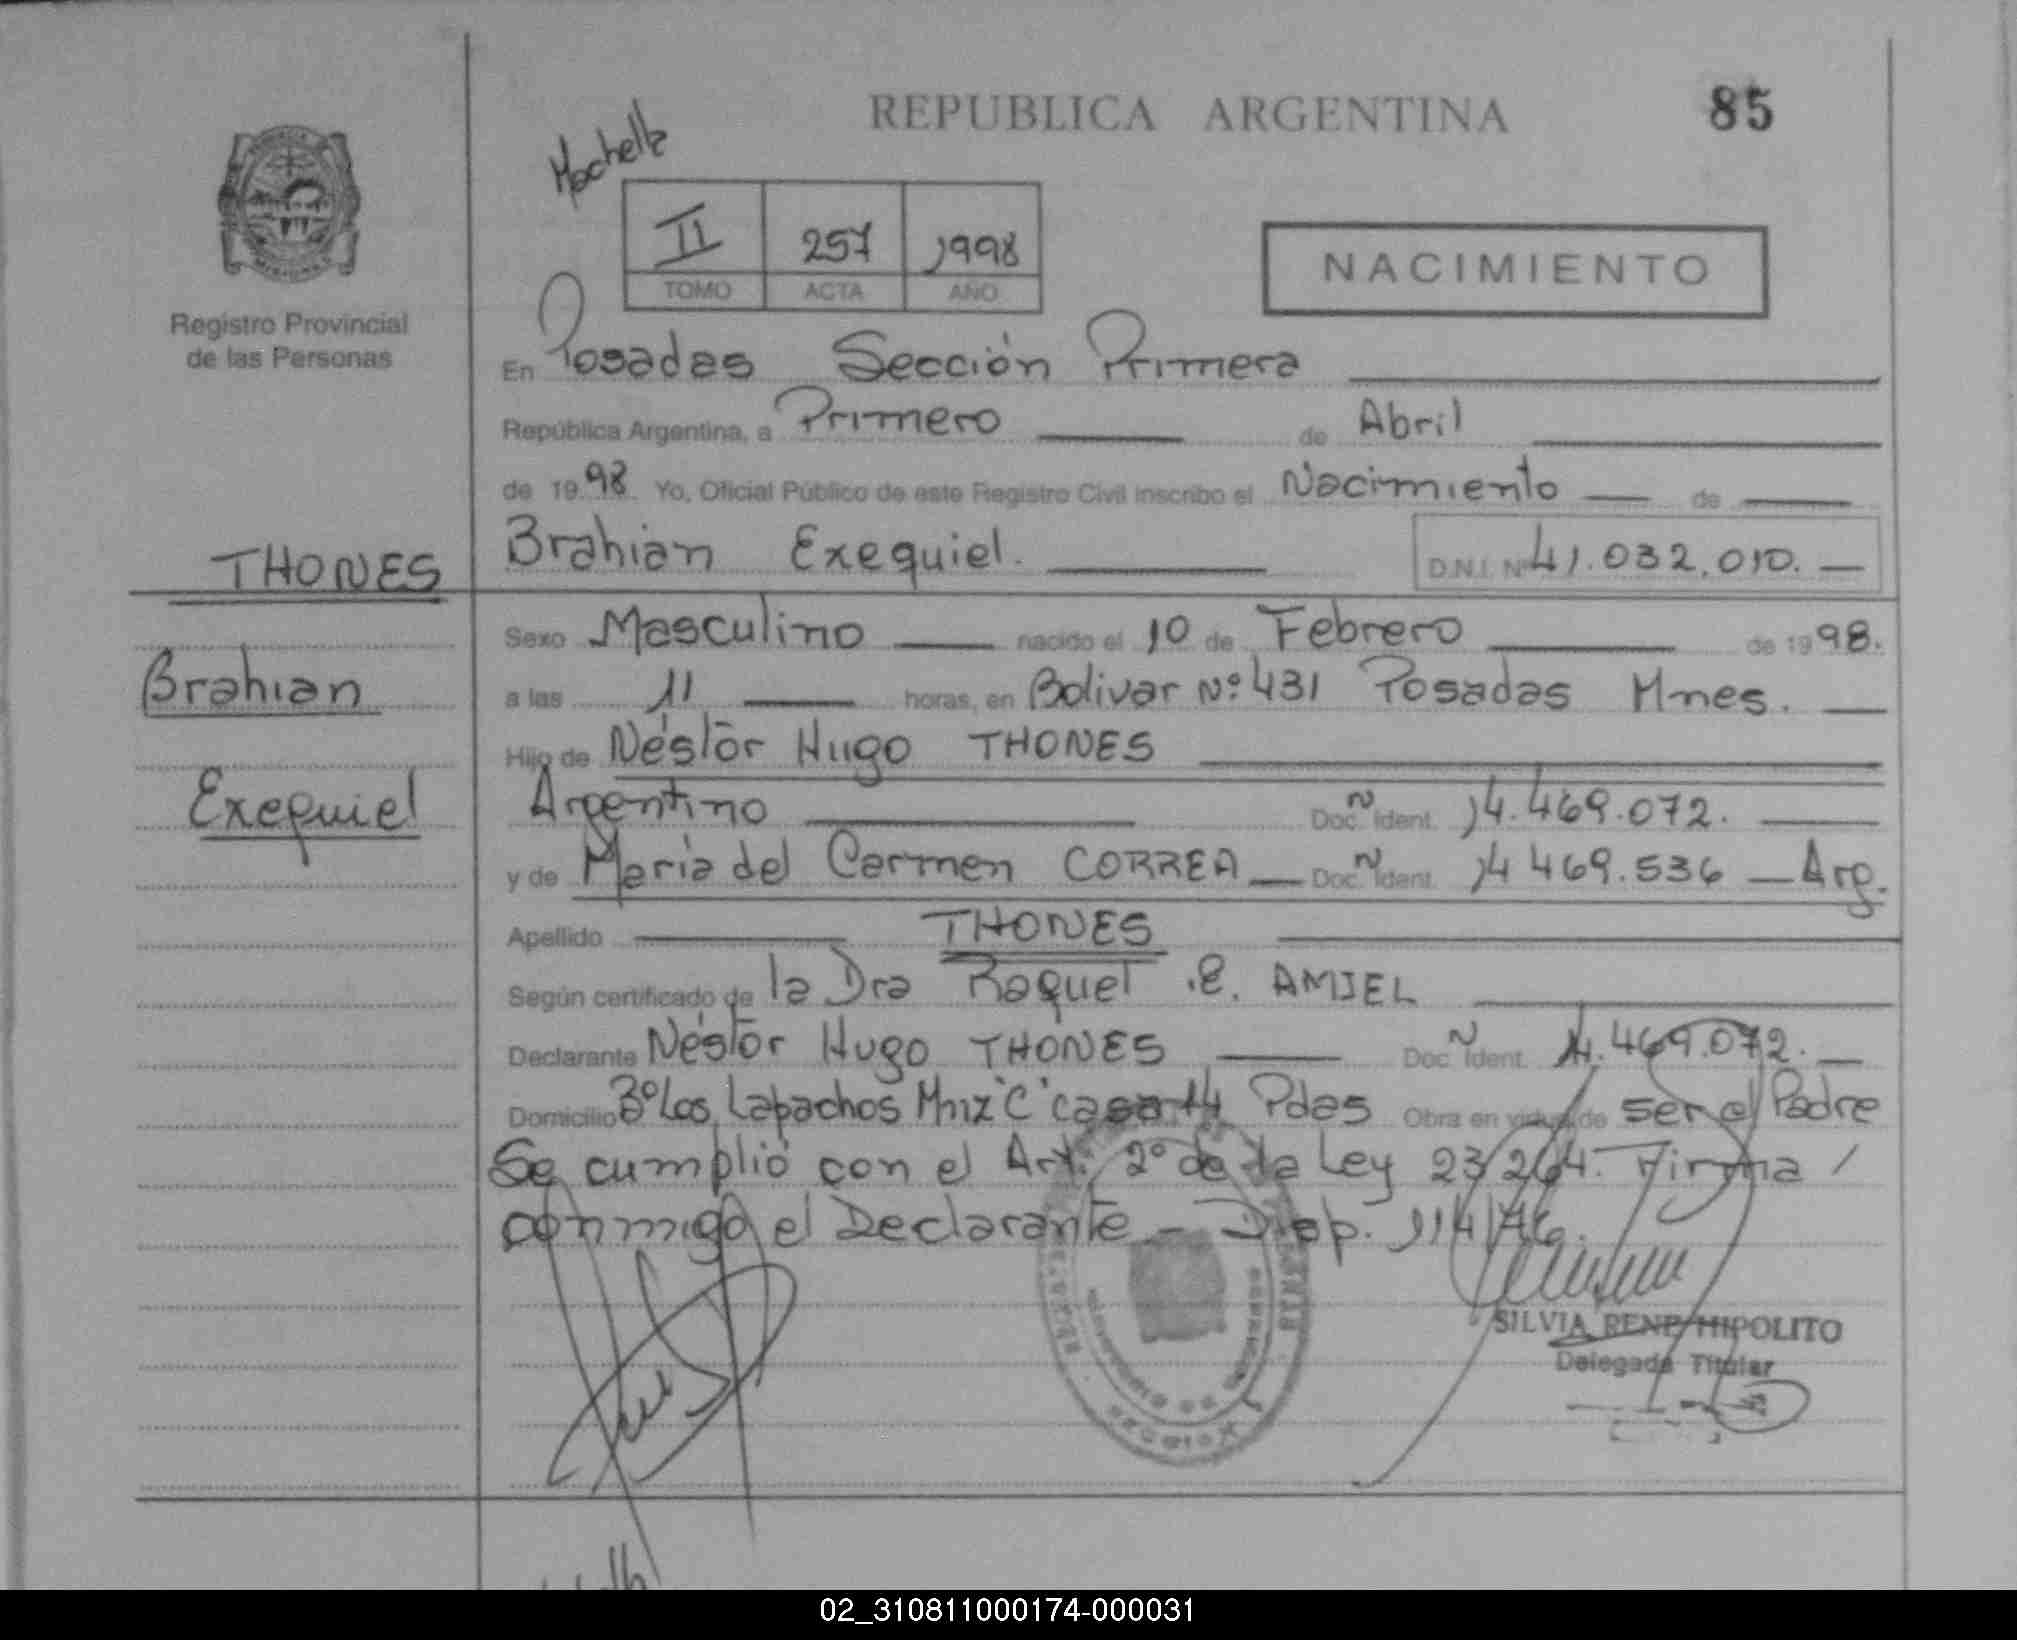 REPUBLICA ARGENTINA
85
II 257 1998
TOMO ACTA AÑO
NACIMIENTO
Registro Provincial
de las Personas
En Posadas Sección Primera
República Argentina, a Primero de Abril
de 1998 Yo, Oficial Público de este Registro Civil inscribo el Nacimiento de
THONES
Brahian Exequiel. D.N.I. Nº 41.032.010.
Sexo Masculino nacido el 10 de Febrero de 1998.
Brahian
a las 11 horas, en Bolivar Nº 431 Posadas Mnes.
Hijo de Néstor Hugo THONES
Exequiel
Argentino Doc. Ident. 14.469.072.
y de María del Carmen CORREA Doc. Ident. 14 469.536 Arg.
Apellido THONES
Según certificado de la Dra Raquel E. AMIEL
Declarante Néstor Hugo THONES Doc Ident. 14.469.072.
Domicilio Bº Los Lapachos Mnz "C" casa 14 Pdas Obra en virtud de ser el Padre
Se cumplió con el Art. 2º de la Ley 23264. Firma /
conmigo el Declarante - Disp. 114/76.
SILVIA RENE HIPOLITO
Delegada Titular
02_310811000174-000031